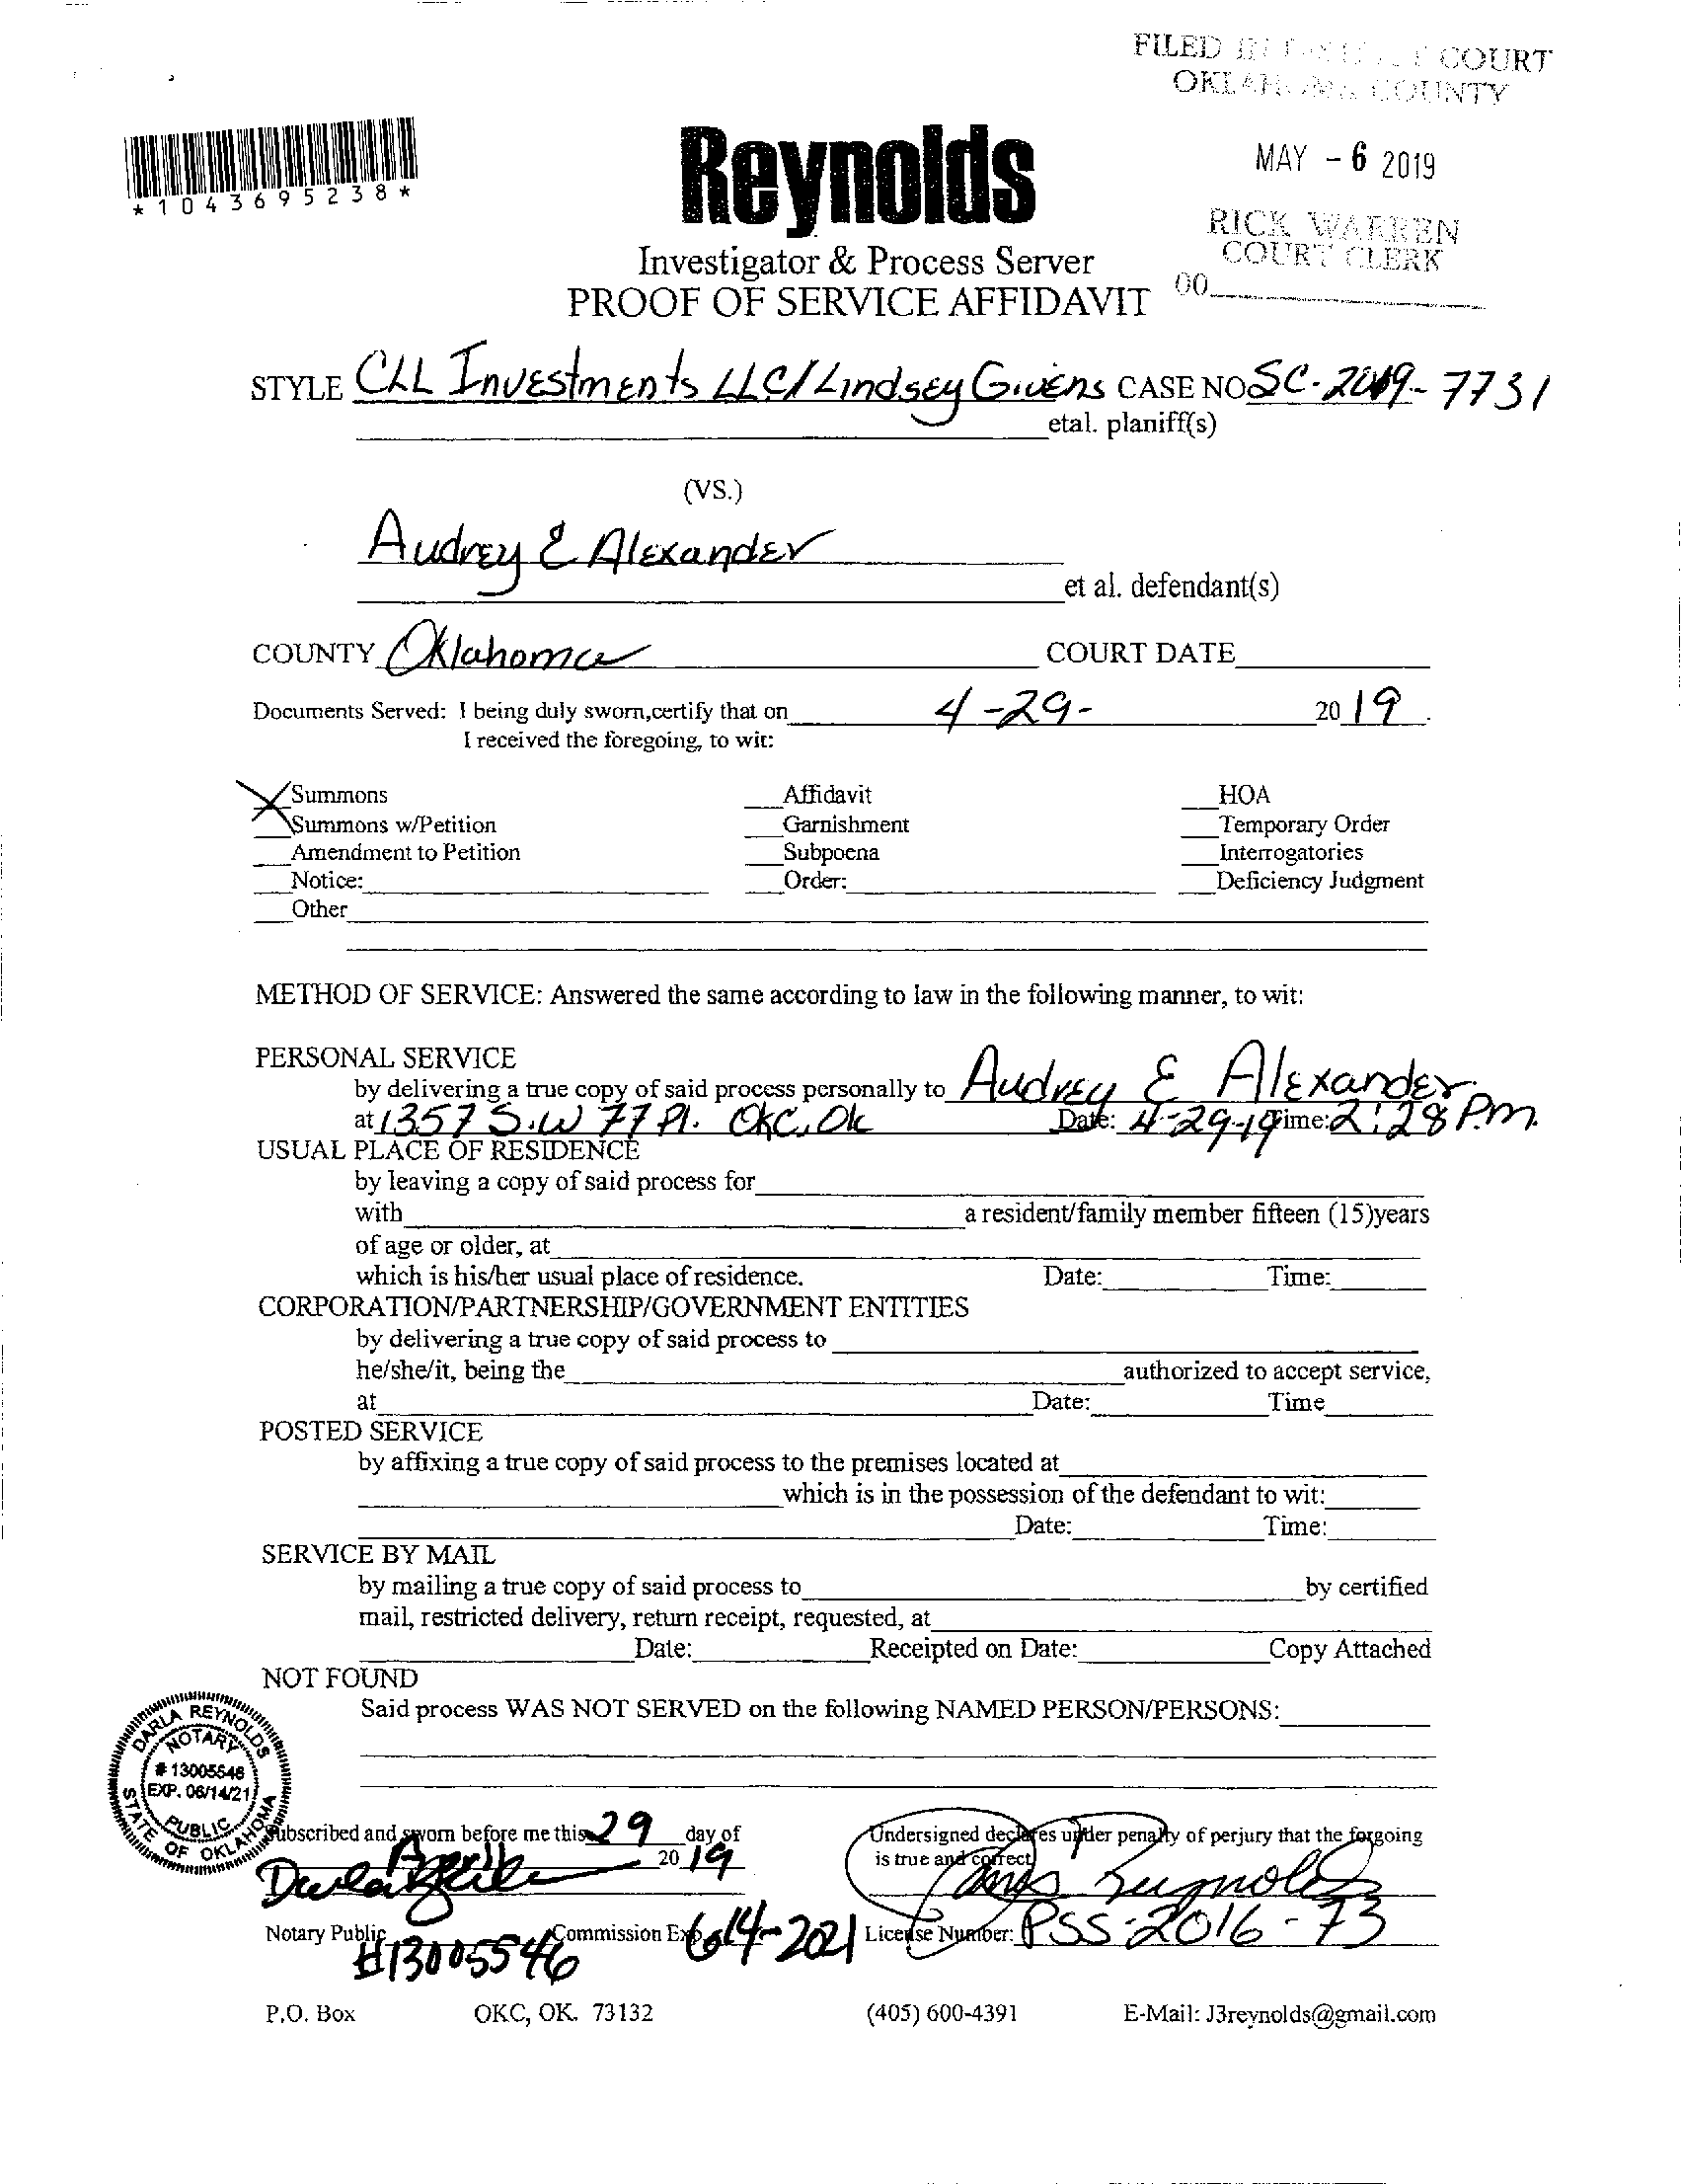 FILED IN COURT
OKLAHOMA COUNTY
MAY - 6 2019
RICK WARREN
COURT CLERK
00
*1043695238*
Reynolds
Investigator & Process Server
PROOF OF SERVICE AFFIDAVIT
STYLE CLL Investments LLC/Lindsey Givens CASE NO SC-2019-7731
etal. planiff(s)
(VS.)
Audrey E Alexander
et al. defendant(s)
COUNTY Oklahoma COURT DATE
Documents Served: I being duly sworn,certify that on 4-29- 2019.
I received the foregoing, to wit:
X Summons Affidavit HOA
Summons w/Petition Garnishment Temporary Order
Amendment to Petition Subpoena Interrogatories
Notice: Order: Deficiency Judgment
Other
METHOD OF SERVICE: Answered the same according to law in the following manner, to wit:
PERSONAL SERVICE
by delivering a true copy of said process personally to Audrey E Alexander
at 13575 S.W 77 Pl. OKC, Ok Date: 4-29-19 Time: 2:28 P.m.
USUAL PLACE OF RESIDENCE
by leaving a copy of said process for
with a resident/family member fifteen (15)years
of age or older, at
which is his/her usual place of residence. Date: Time:
CORPORATION/PARTNERSHIP/GOVERNMENT ENTITIES
by delivering a true copy of said process to
he/she/it, being the authorized to accept service,
at Date: Time
POSTED SERVICE
by affixing a true copy of said process to the premises located at
which is in the possession of the defendant to wit:
Date: Time:
SERVICE BY MAIL
by mailing a true copy of said process to by certified
mail, restricted delivery, return receipt, requested, at
Date: Receipted on Date: Copy Attached
NOT FOUND
Said process WAS NOT SERVED on the following NAMED PERSON/PERSONS:
DARLA REYNOLDS
NOTARY
# 13005546
EXP. 06/14/21
PUBLIC
STATE OF OKLAHOMA
Subscribed and sworn before me this 29 day of
April 2019
Undersigned declares under penalty of perjury that the forgoing
is true and correct
Reynolds
Notary Public #13005546 Commission Exp 6-14-2021 License Number: PSS-2016-73
P.O. Box OKC, OK. 73132 (405) 600-4391 E-Mail: J3reynolds@gmail.com